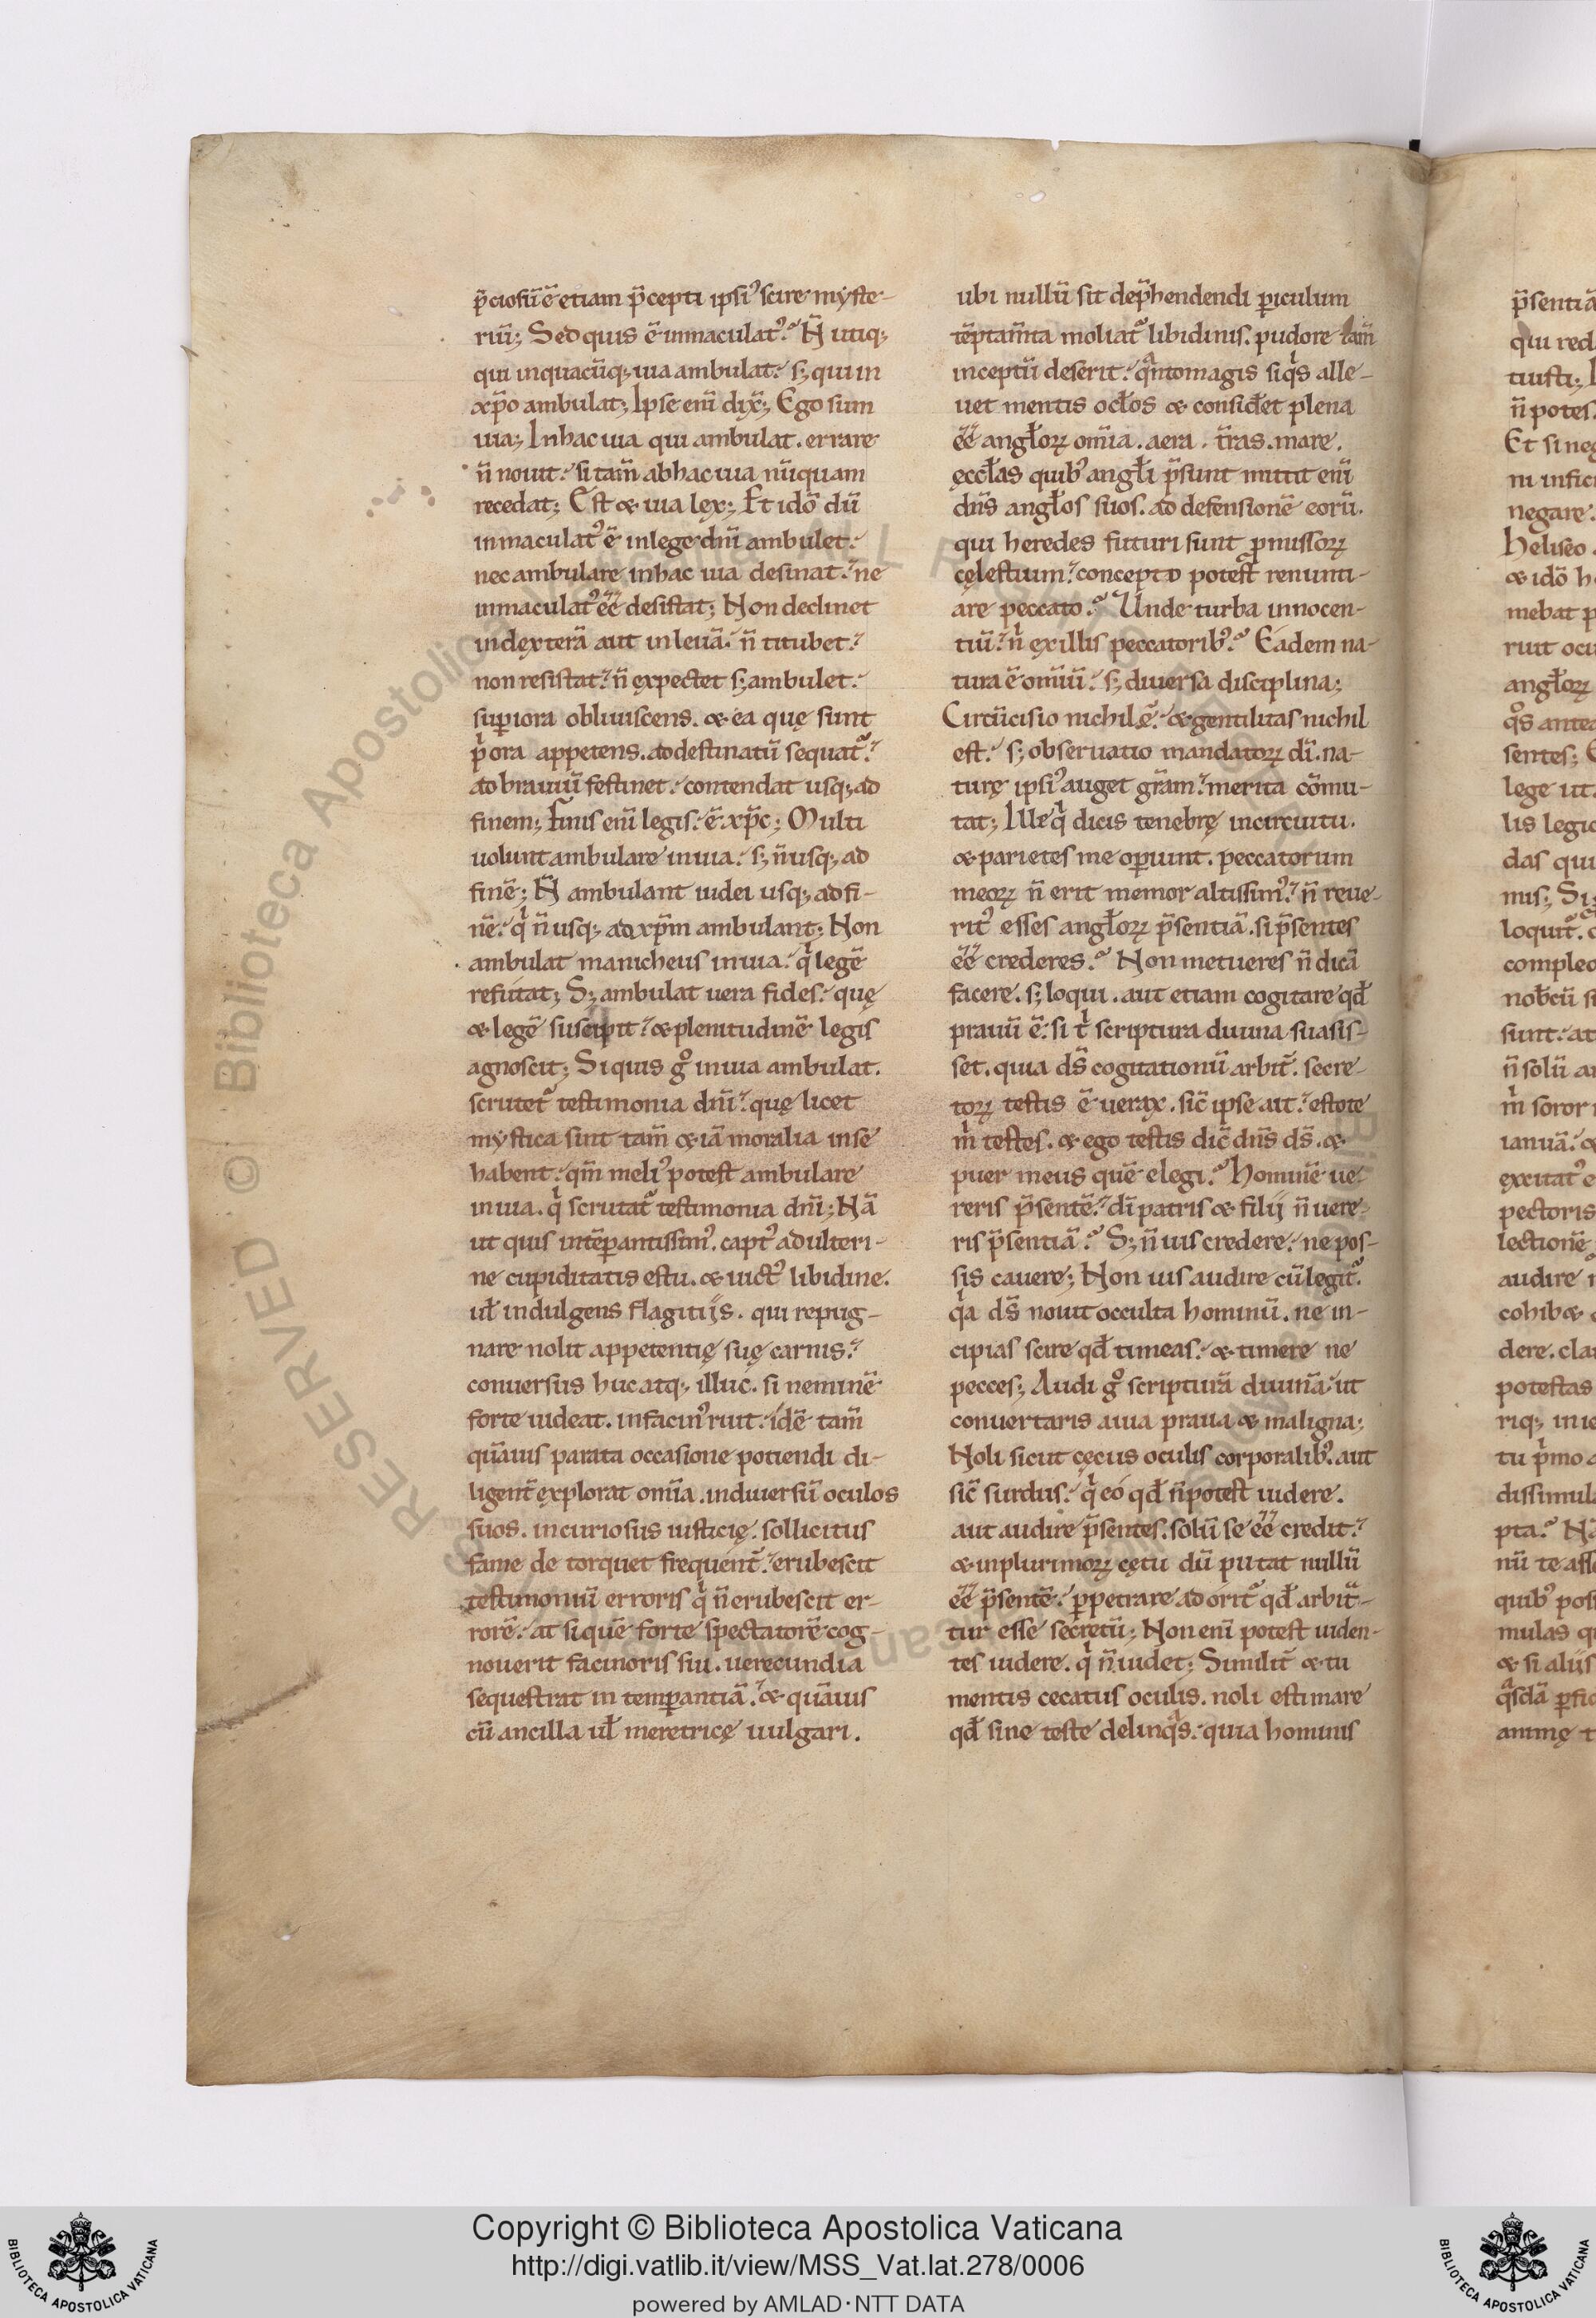 p̄ciosū ē etiam p̄cepti ipsiꝰ scire myste-
riū; Sed quis ē inmaculatꝰ? N̄ utiq;
qui inquacūq; uia ambulat. s; qui in
xp̄o ambulat; Ipse enī dix̄; Ego sum
uia; In hac uia qui ambulat. errare
n̄ nouit. si tam̄ ab hac uia nūquam
recedat; Est & uia lex; Et idō dū
inmaculatꝰ ē in lege dn̄i ambulet.
nec ambulare in hac uia desinat. ne
inmaculatꝰ ēē desistat; Non declinet
in dexterā aut in leuā. n̄ titubet.
non resistat. n̄ expectet s; ambulet.
suꝑiora obliuiscens. & ea quę sunt
pͥora appetens. ad destinatū sequat᷑.
ad brauiū festinet. contendat usq; ad
finem; Finis enī legis. ē xp̄c; Multi
uolunt ambulare in uia. s; n̄ usq; ad
finē; N̄ ambulant iudei usq; ad fi-
nē. qͥ n̄ usq; ad xp̄m ambulant; Non
ambulat manicheus in uia. qͥ legē
refutat; S; ambulat uera fides. quę
& legē suscipit. & plenitudinē legis
agnoscit; Si quis gͦ in uia ambulat.
scrutet᷑ testimonia dn̄i. quę licet
mystica sint tam̄ & iā moralia in se
habent. qm̄ meliꝰ potest ambulare
in uia. qͥ scrutat᷑ testimonia dn̄i; Nā
ut quis intēꝑantissimꝰ. captꝰ adulteri-
ne cupiditatis estu. & uictꝰ libidine.
ul̄ indulgens flagitijs. qui repug-
nare nolit appetentię suę carnis.
conuersus huc atq; illuc. si neminē
forte uideat. in facinꝰ ruit. idē tam̄
quāuis parata occasione potiendi di-
ligent̄ explorat om̄ia. in diuersū oculos
suos. incuriosus iusticię. sollicitus
fame de torquet frequent̄. erubescit
testimoniū erroris qͥ n̄ erubescit er-
rorē. at si quē forte spectatorē cog-
nouerit facinoris sui. uerecundia
sequestrat in temꝑantiā. & quāuis
cū ancilla ul̄ meretricę uulgari.
ubi nullū sit dep̄hendendi ꝑiculum
tēptam̄ta moliat᷑ libidinis. pudore tam̄
inceptū deserit. qͣntomagis si qͥs alle-
uet mentis ocl̄os & consid̄et plena
ēē angl̄oꝝ om̄ia. aera. t̄ras. mare.
ęccl̄as quibꝰ angl̄i p̄sunt mittit enī
dn̄s angl̄os suos. ad defensionē eorū.
qui heredes futuri sunt ꝓmissoꝝ
cęlestium. concepto potest renunti-
are peccato? Unde turba innocen-
tiū. nͥ ex illis peccatoribꝰ? Eadem na-
tura ē om̄iū. s; diuersa disciplina;
Circūcisio nichil ē. & gentilitas nichil
est. s; obseruatio mandatoꝝ dī. na-
turę ipsiꝰ auget gr̄am. merita cōmu-
tat; Ille qͥ dicis tenebrę in circuitu.
& parietes me oꝑiunt. peccatorum
meoꝝ n̄ erit memor altissimꝰ. n̄ reue-
ritꝰ esses angl̄oꝝ p̄sentiā. si p̄sentes
ēē crederes? Non metueres n̄ dicā
facere. s; loqui. aut etiam cogitare qd̄
prauū ē. si tͥ scriptura diuina suasis-
set. quia ds̄ cogitationū arbit̄. secre-
toꝝ testis ē uerax. sic̄ ipse ait. estote
mͥ testes. & ego testis dic̄ dn̄s ds̄. &
puer meus quē elegi? Hominē ue-
reris p̄sentē. dī patris & filij n̄ uere-
ris p̄sentiā? S; n̄ uis credere. ne pos-
sis cauere; Non uis audire cū legit᷑.
qͥa ds̄ nouit occulta hominū. ne in-
cipias scire qd̄ timeas. & timere ne
pecces; Audi gͦ scripturā diuinā ut
conuertaris a uia praua & maligna;
Noli sicut cęcus oculis corporalibꝰ. aut
sic̄ surdus. qͥ eo qd̄ n̄ potest uidere.
aut audire p̄sentes. solū se ēē credit.
& in plurimoꝝ cętu dū putat nullū
ēē p̄sentē. ꝑpetrare adorit᷑ qd̄ arbit̄-
tur esse secretū; Non enī potest uiden-
tes uidere. qͥ n̄ uidet; Similit̄ & tu
mentis cecatus oculis. noli estimare
qd̄ sine teste delinqͥs. quia hominis
Copyright © Biblioteca Apostolica Vaticana
http://digi.vatlib.it/view/MSS_Vat.lat.278/0006
powered by AMLAD·NTT DATA